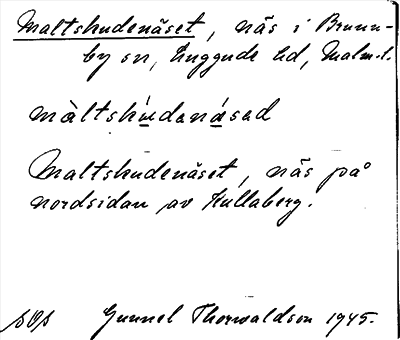 Maltskudenäset, näs i Brunn-
by sn, Luggude hd, Malm.l.
màltskúdanásad
Maltskudenäset, näs på
nordsidan av Kullaberg.
Gunnel Thorwaldson 1945.